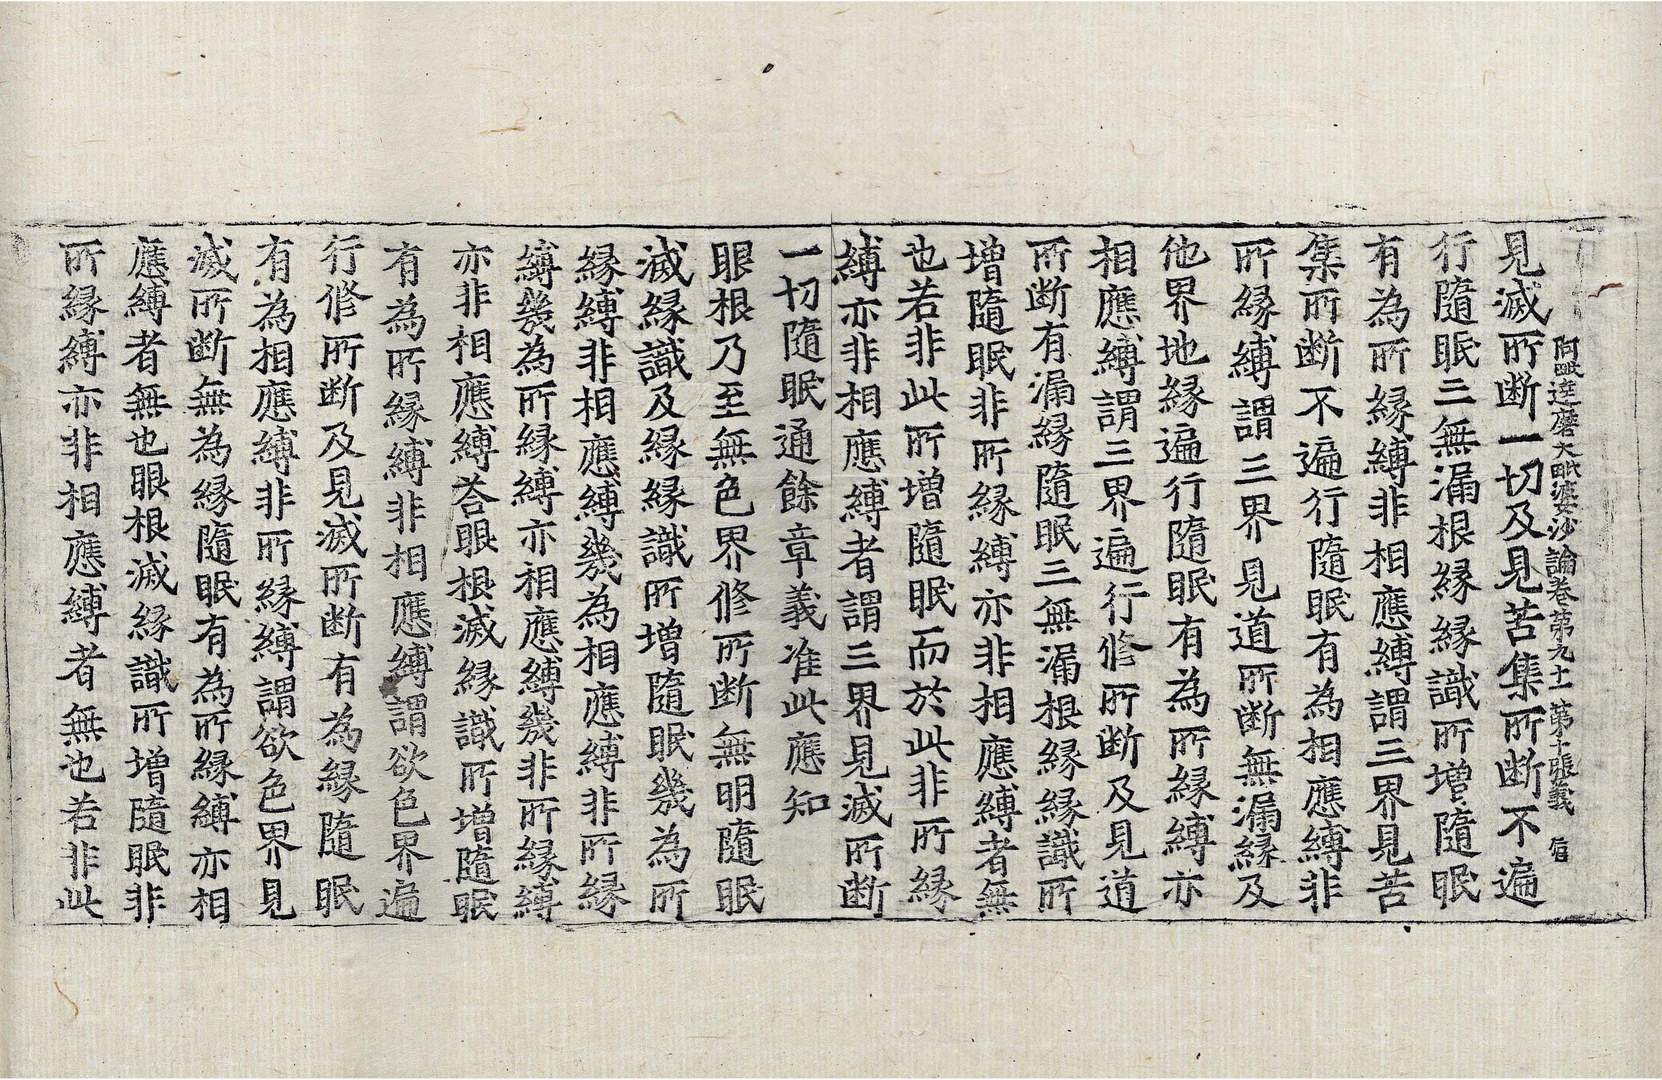 阿毗達磨大毗婆沙論卷第九十一 第十張 義
見滅所断一切及見苦集所断不遍
行隨眠三無漏根縁縁識所增隨眠
有為所縁縛非相應縛謂三界見苦
集所断不遍行隨眠有為相應縛非
所縁縛謂三界見道所断無漏縁及
他界地縁遍行隨眠有為所縁縛亦
相應縛謂三界遍行修所断及見道
所断有漏縁隨眠三無漏根縁縁識所
增隨眠非所縁縛亦非相應縛者無
也若非此所增隨眠而於此非所縁
縛亦非相應縛者謂三界見滅所断
一切隨眠通餘章義准此應知
眼根乃至無色界修所断無明隨眠
滅縁識及縁縁識所增隨眠幾為所
縁縛非相應縛幾為相應縛非所縁
縛幾為所縁縛亦相應縛幾非所縁縛
亦非相應縛荅眼根滅縁識所增隨眠
有為所縁縛非相應縛謂欲色界遍
行修所断及見滅所断有為縁隨眠
有為相應縛非所縁縛謂欲色界見
滅所断無為縁隨眠有為所縁縛亦相
應縛者無也眼根滅縁識所增隨眠非
所縁縛亦非相應縛者無也若非此